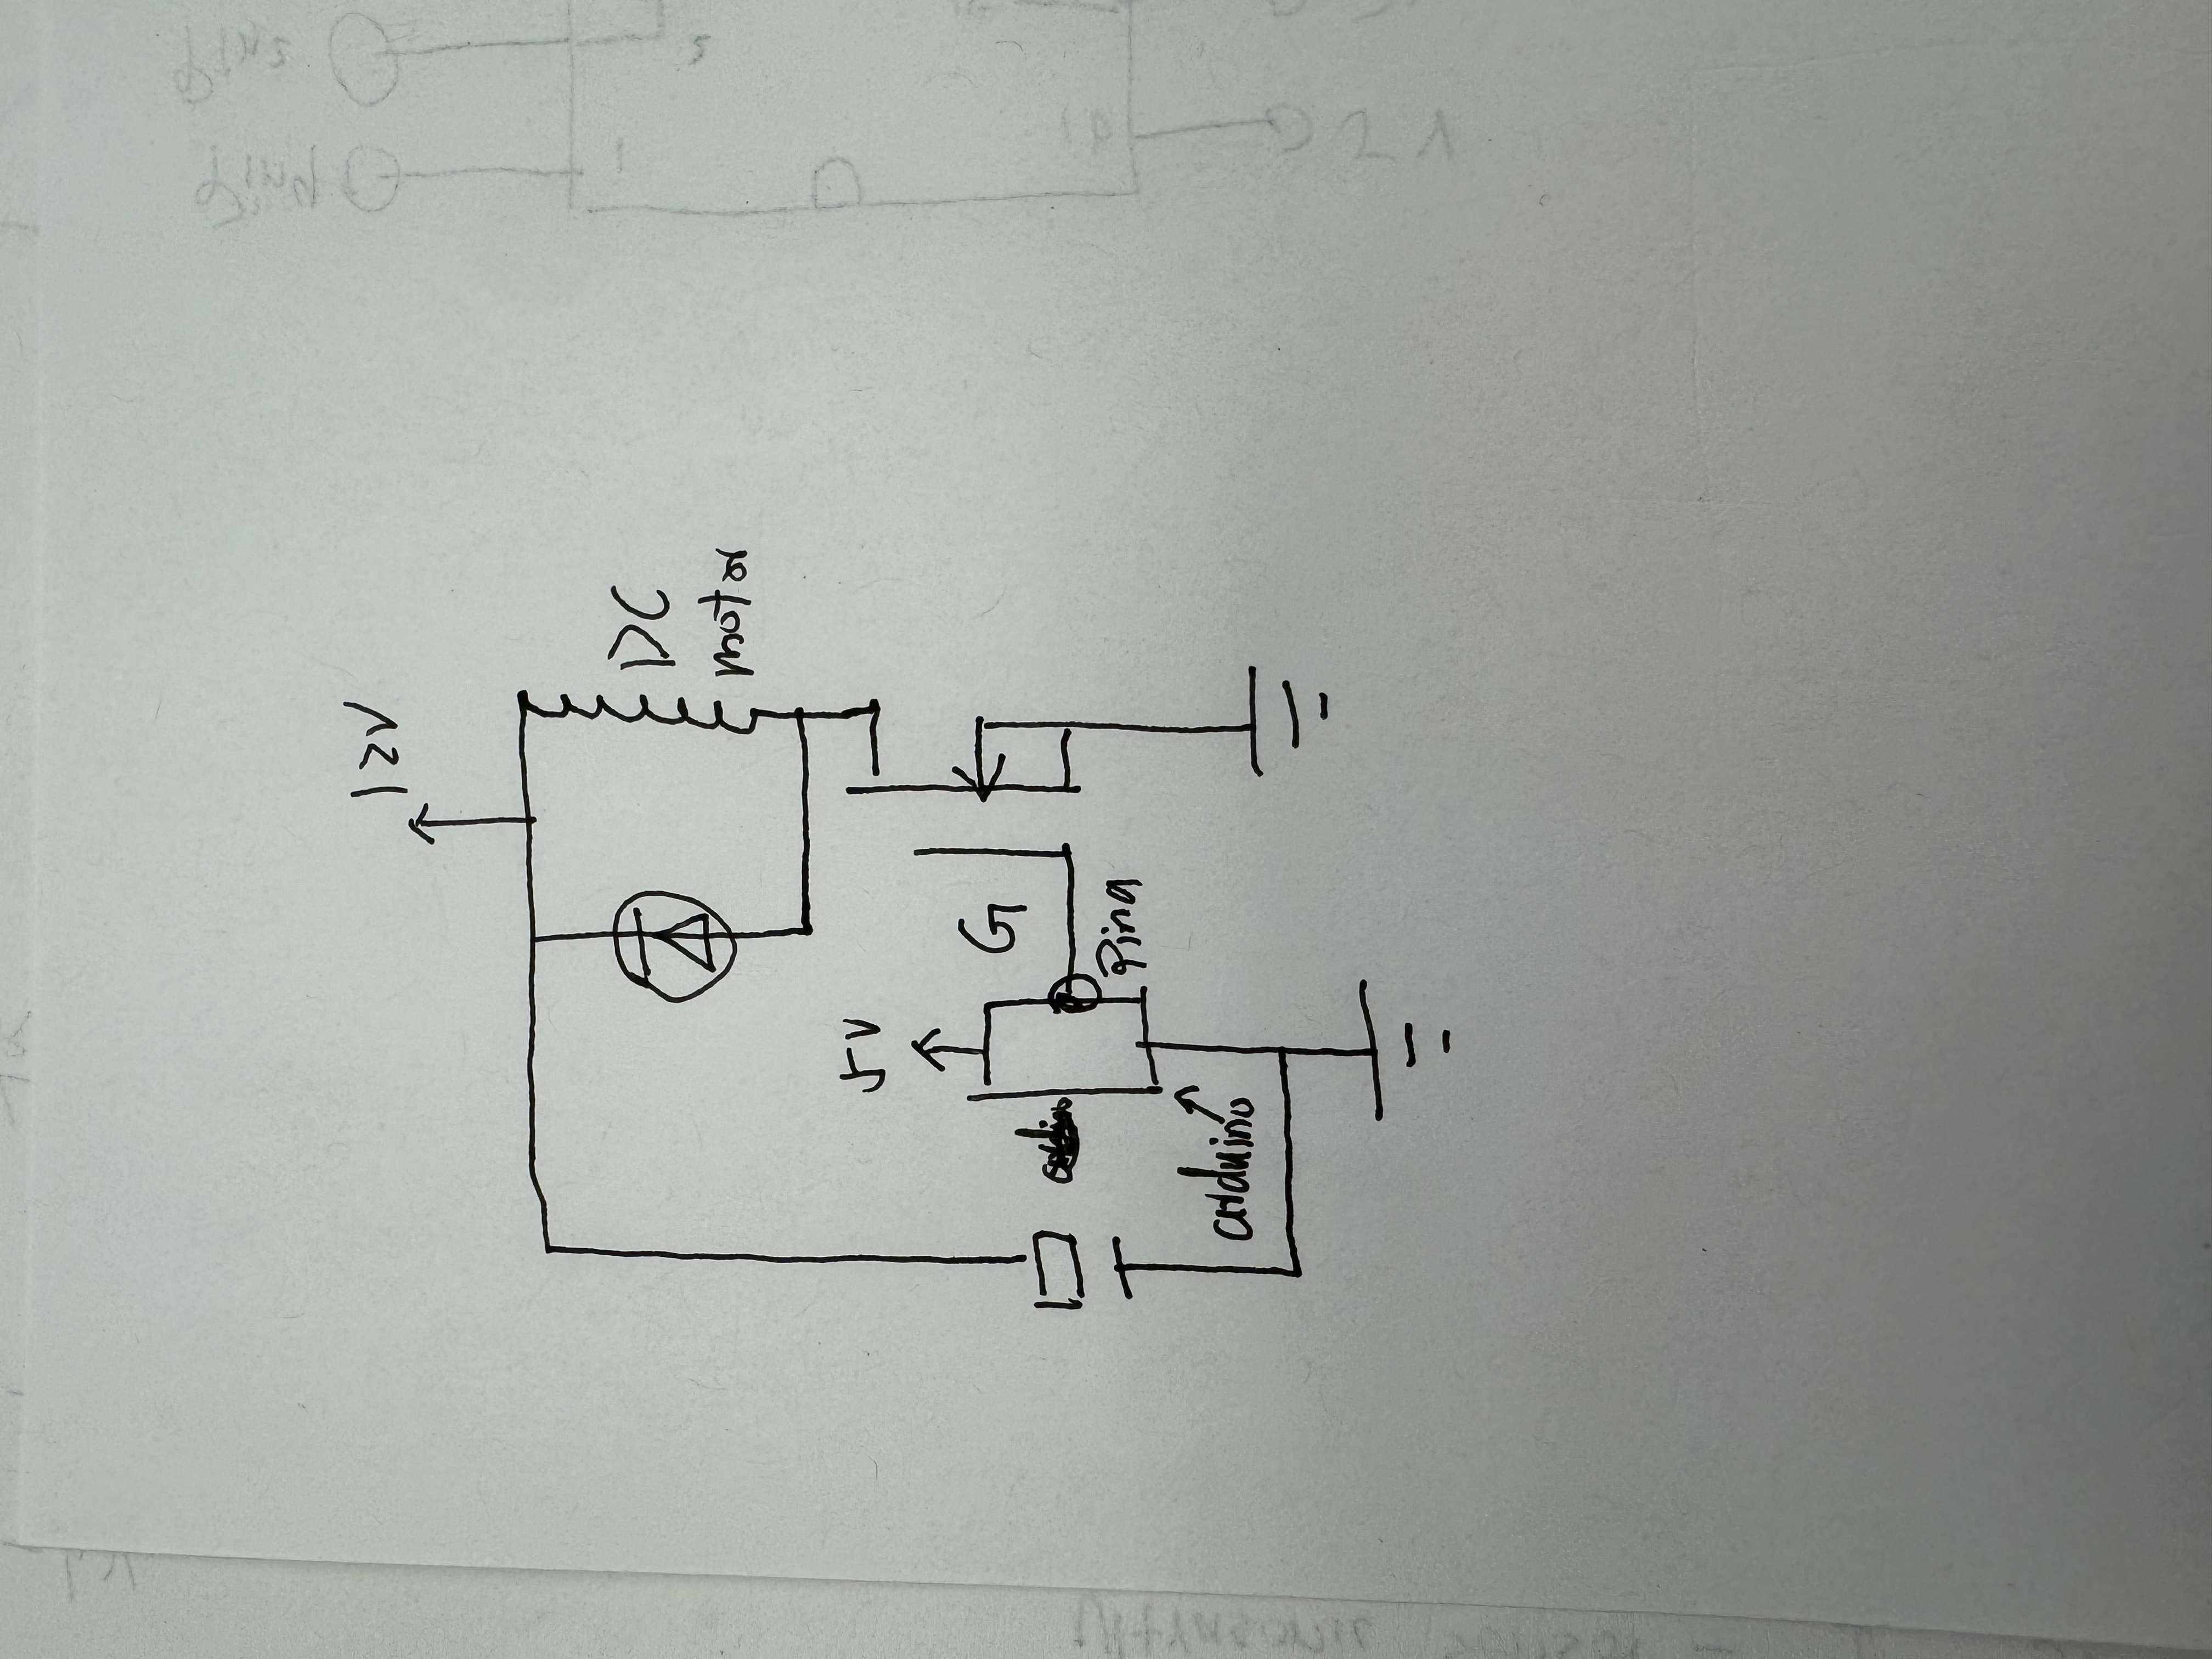 12V
DC
motor
5V
G
Pin9
arduino